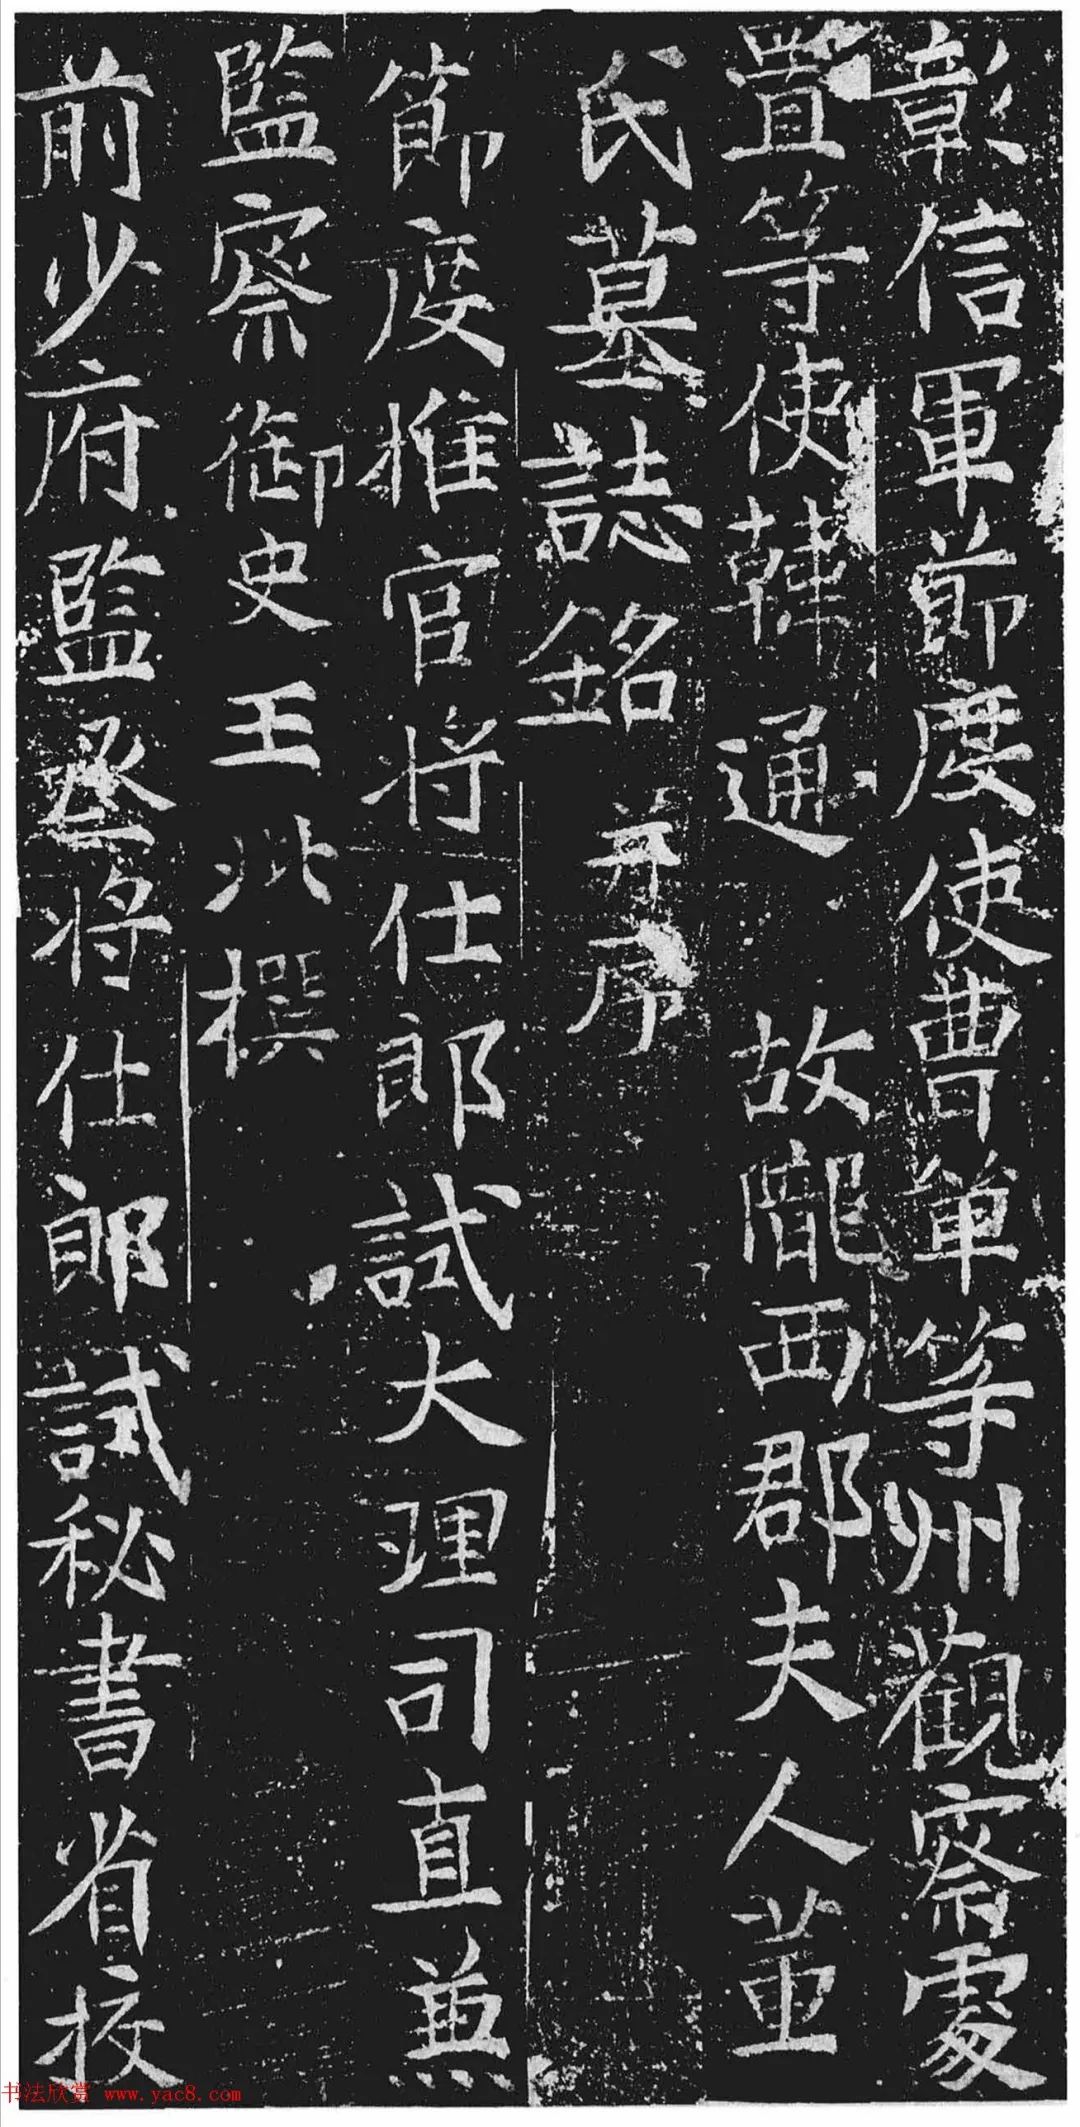 彰信軍節度使曹單等州觀察處
置等使韓通 故隴西郡夫人董
氏墓誌銘 并序
節度推官將仕郎試大理司直兼
監察御史王玭撰
前少府監丞將仕郎試秘書省校
书法欣赏 www.yac8.com